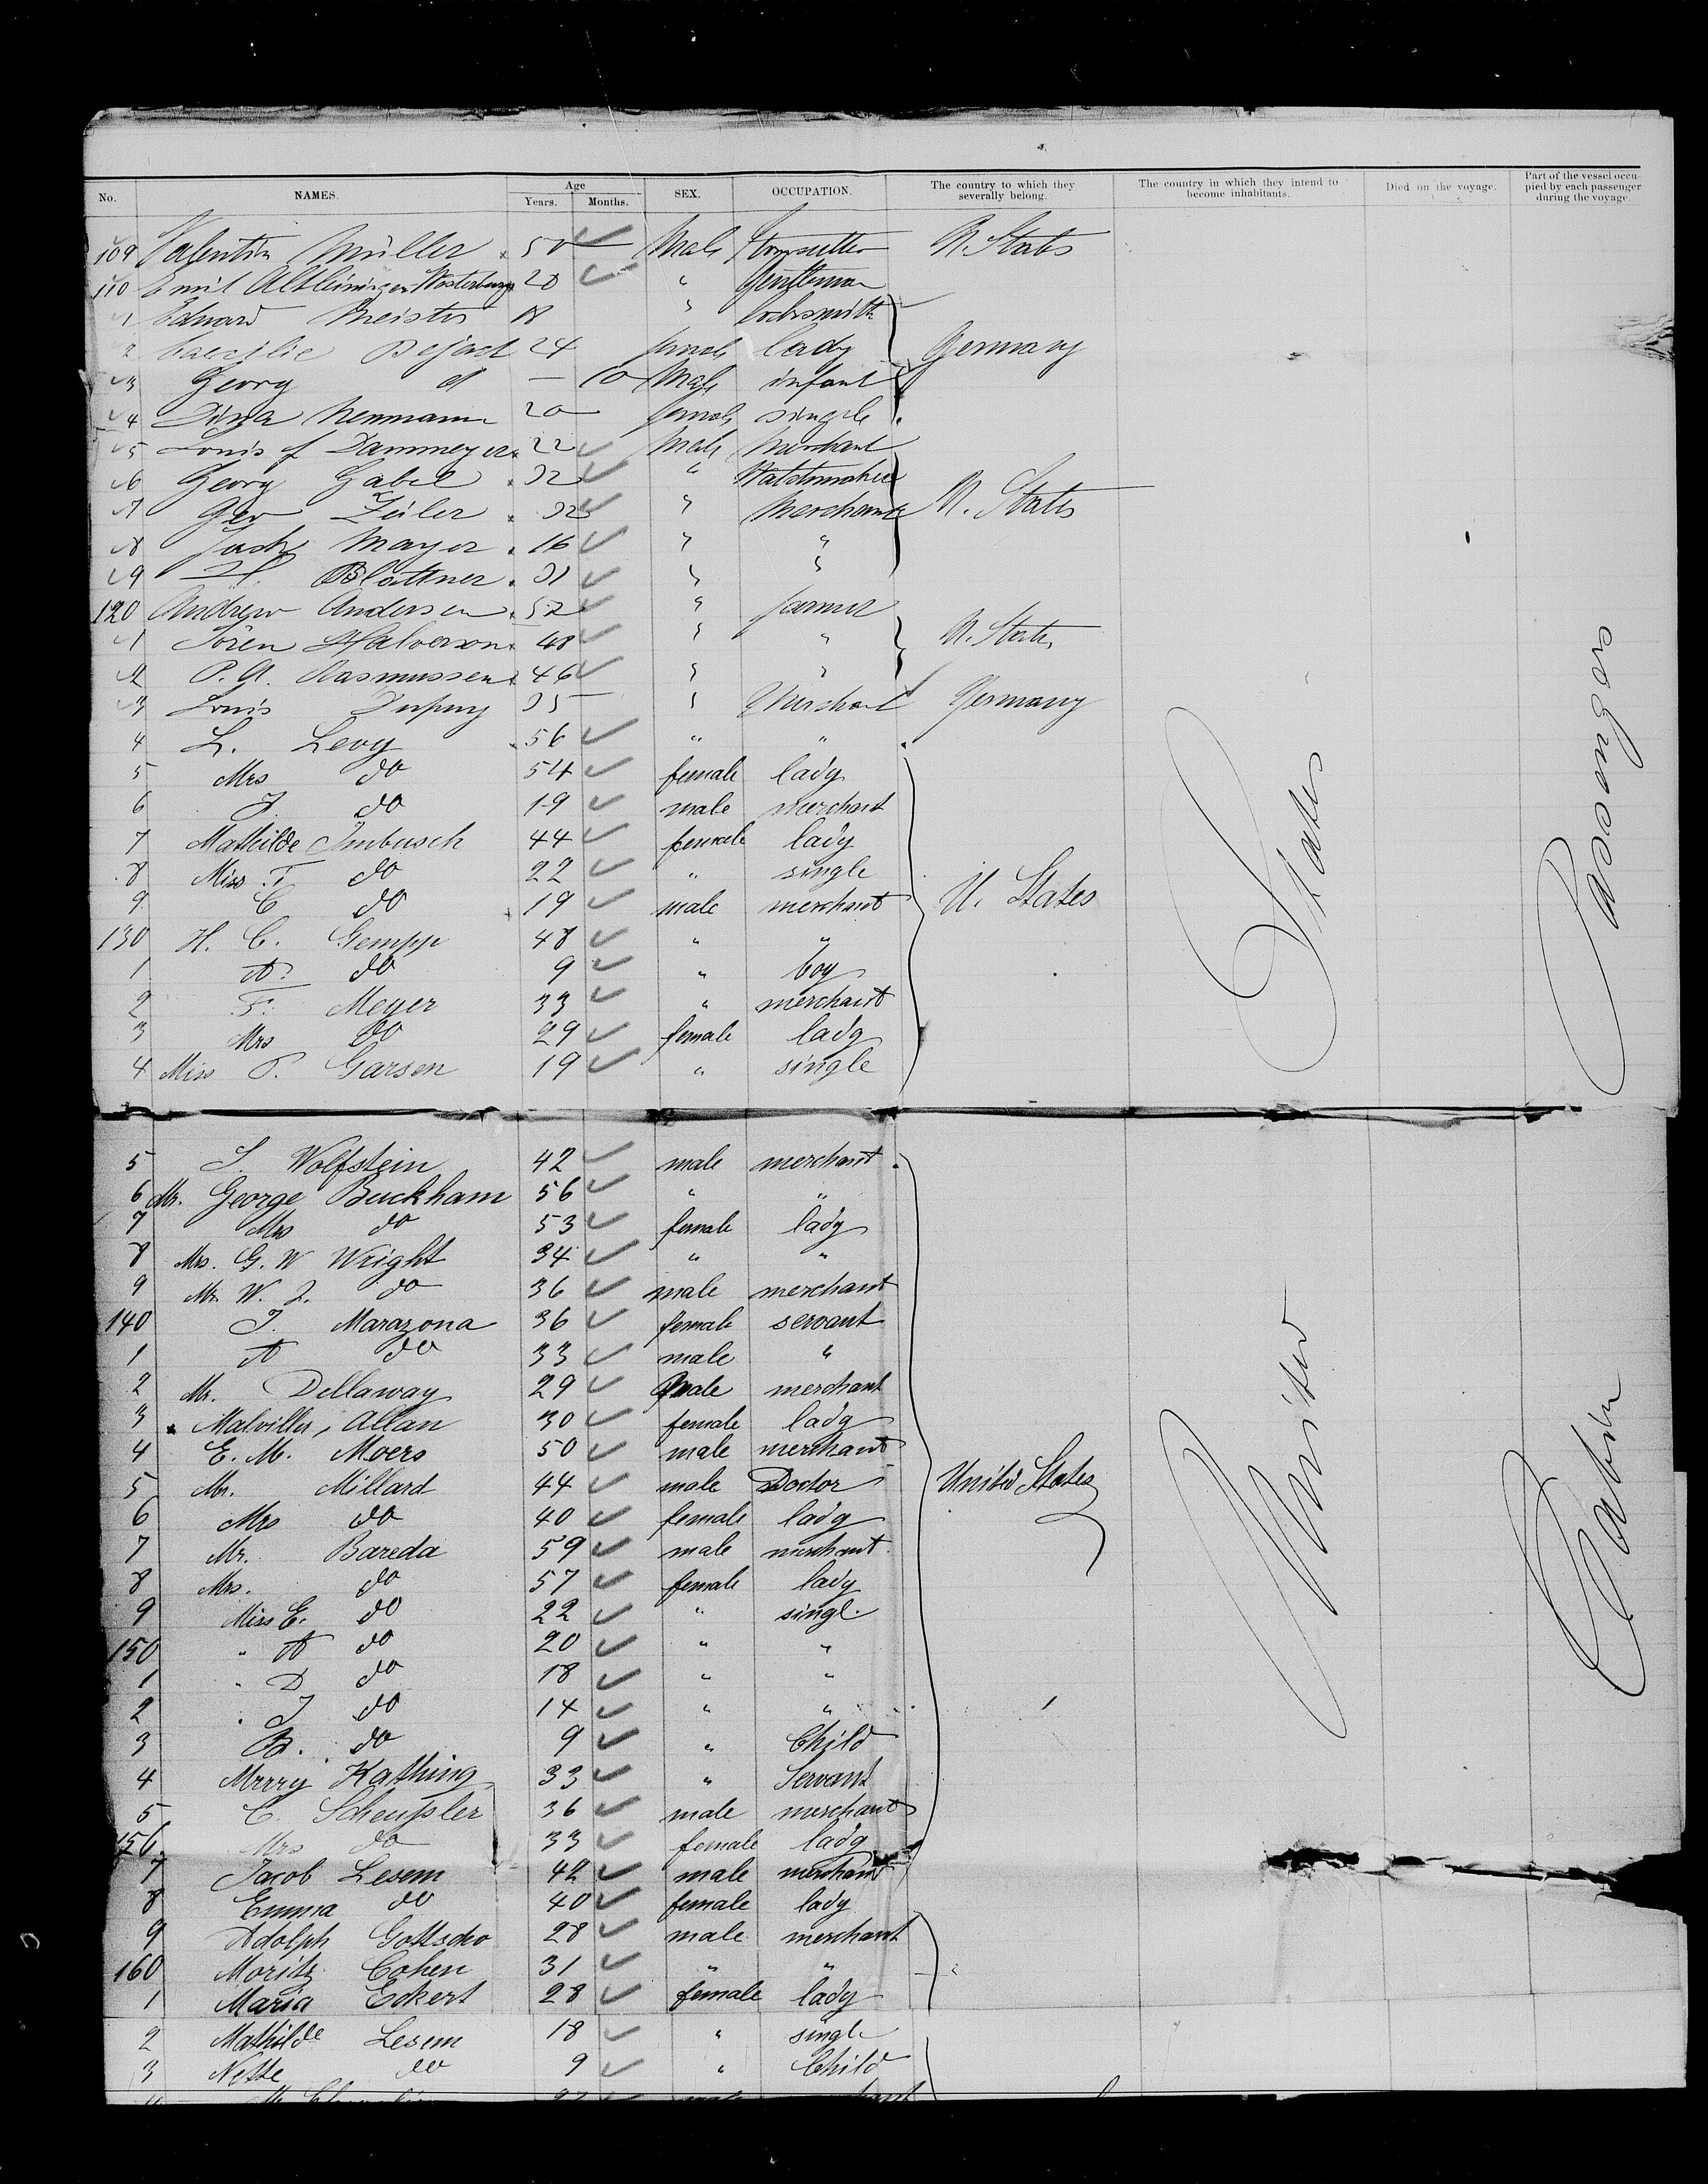 No. NAMES. Age Years. Months. SEX. OCCUPATION. The country to which they severally belong. The country in which they intend to become inhabitants. Died on the voyage. Part of the vessel occupied by each passenger during the voyage
109 Valentin Müller 50 Male U. States
110 Emil 20 " Gentleman
1 Eduard Meister 18 " Locksmith
2 Caecilie Bejach 24 female lady Germany
3 Georg d — 10 Male infant
4 Dina Neumann 20 female single
5 Louis f Dammeyer 22 Male Merchant
6 Georg Gabel 32 " Watchmaker
7 Geo Zuler 32 " Merchand U. States
8 Jack Mayer 16 " "
9 H. Blattner 31 " "
120 Andrew Andersen 52 " farmer
1 Sören Halverson 48 " " U. States
2 P. A. Rasmussen 46 " "
3 Louis Dupuy 35 " Merchant Germany
4 L. Levy 56 " "
5 Mrs do 54 female lady
6 J. do 19 male merchant
7 Mathilde Imbusch 44 female lady
8 Miss T do 22 " single
9 C do 19 male merchant U. States
130 H. C. Gempp 48 " "
1 A. do 9 " boy
2 F. Meyer 33 " merchant
3 Mrs do 29 female lady
4 Miss P. Garsen 19 " single
5 S. Wolfstein 42 male merchant
6 Mr. George Buckham 56 " "
7 Mrs do 53 female lady
8 Mrs. G. W Wright 34 " "
9 Mr. W. J. do 36 male merchant
140 J. Marazona 36 female servant
1 A do 33 male "
2 Mr. Dellaway 29 male merchant
3 Malviller, Allan 30 female lady
4 E. M. Moers 50 male merchant
5 Mr. Millard 44 male Doctor United States
6 Mrs do 40 female lady
7 Mr. Bareda 59 male merchant
8 Mrs. do 57 female lady
9 Miss E. do 22 " singl.
150 " A do 20 " "
1 " D do 18 " "
2 " J do 14 " "
3 B. do 9 " Child
4 Mrrry Kathing 33 " Servant
5 C. Scheußler 36 male merchant
156. Mrs do 33 female lady
7 Jacob Lesem 42 male merchant
8 Emma do 40 female lady
9 Adolph Gottscho 28 male merchant
160 Moritz Cohen 31 " "
1 Maria Eckert 28 female lady
2 Mathilde Lesem 18 " single
3 Nette do 9 " Child
United States
Cabin Passengers